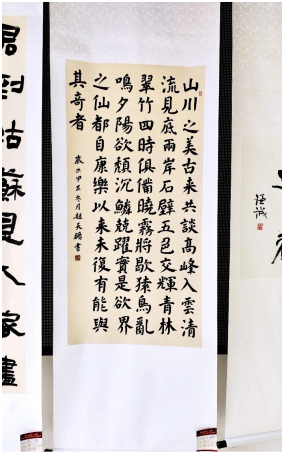 山川之美古来共談高峰入雲清
流見底兩岸石壁五色交輝青林
翠竹四時俱備曉霧將歇猿鳥亂
鳴夕陽欲頹沉鱗競躍實是欲界
之仙都自康樂以来未復有能與
其奇者
歲次甲辰冬月趙天書
君到姑蘇見人家盡